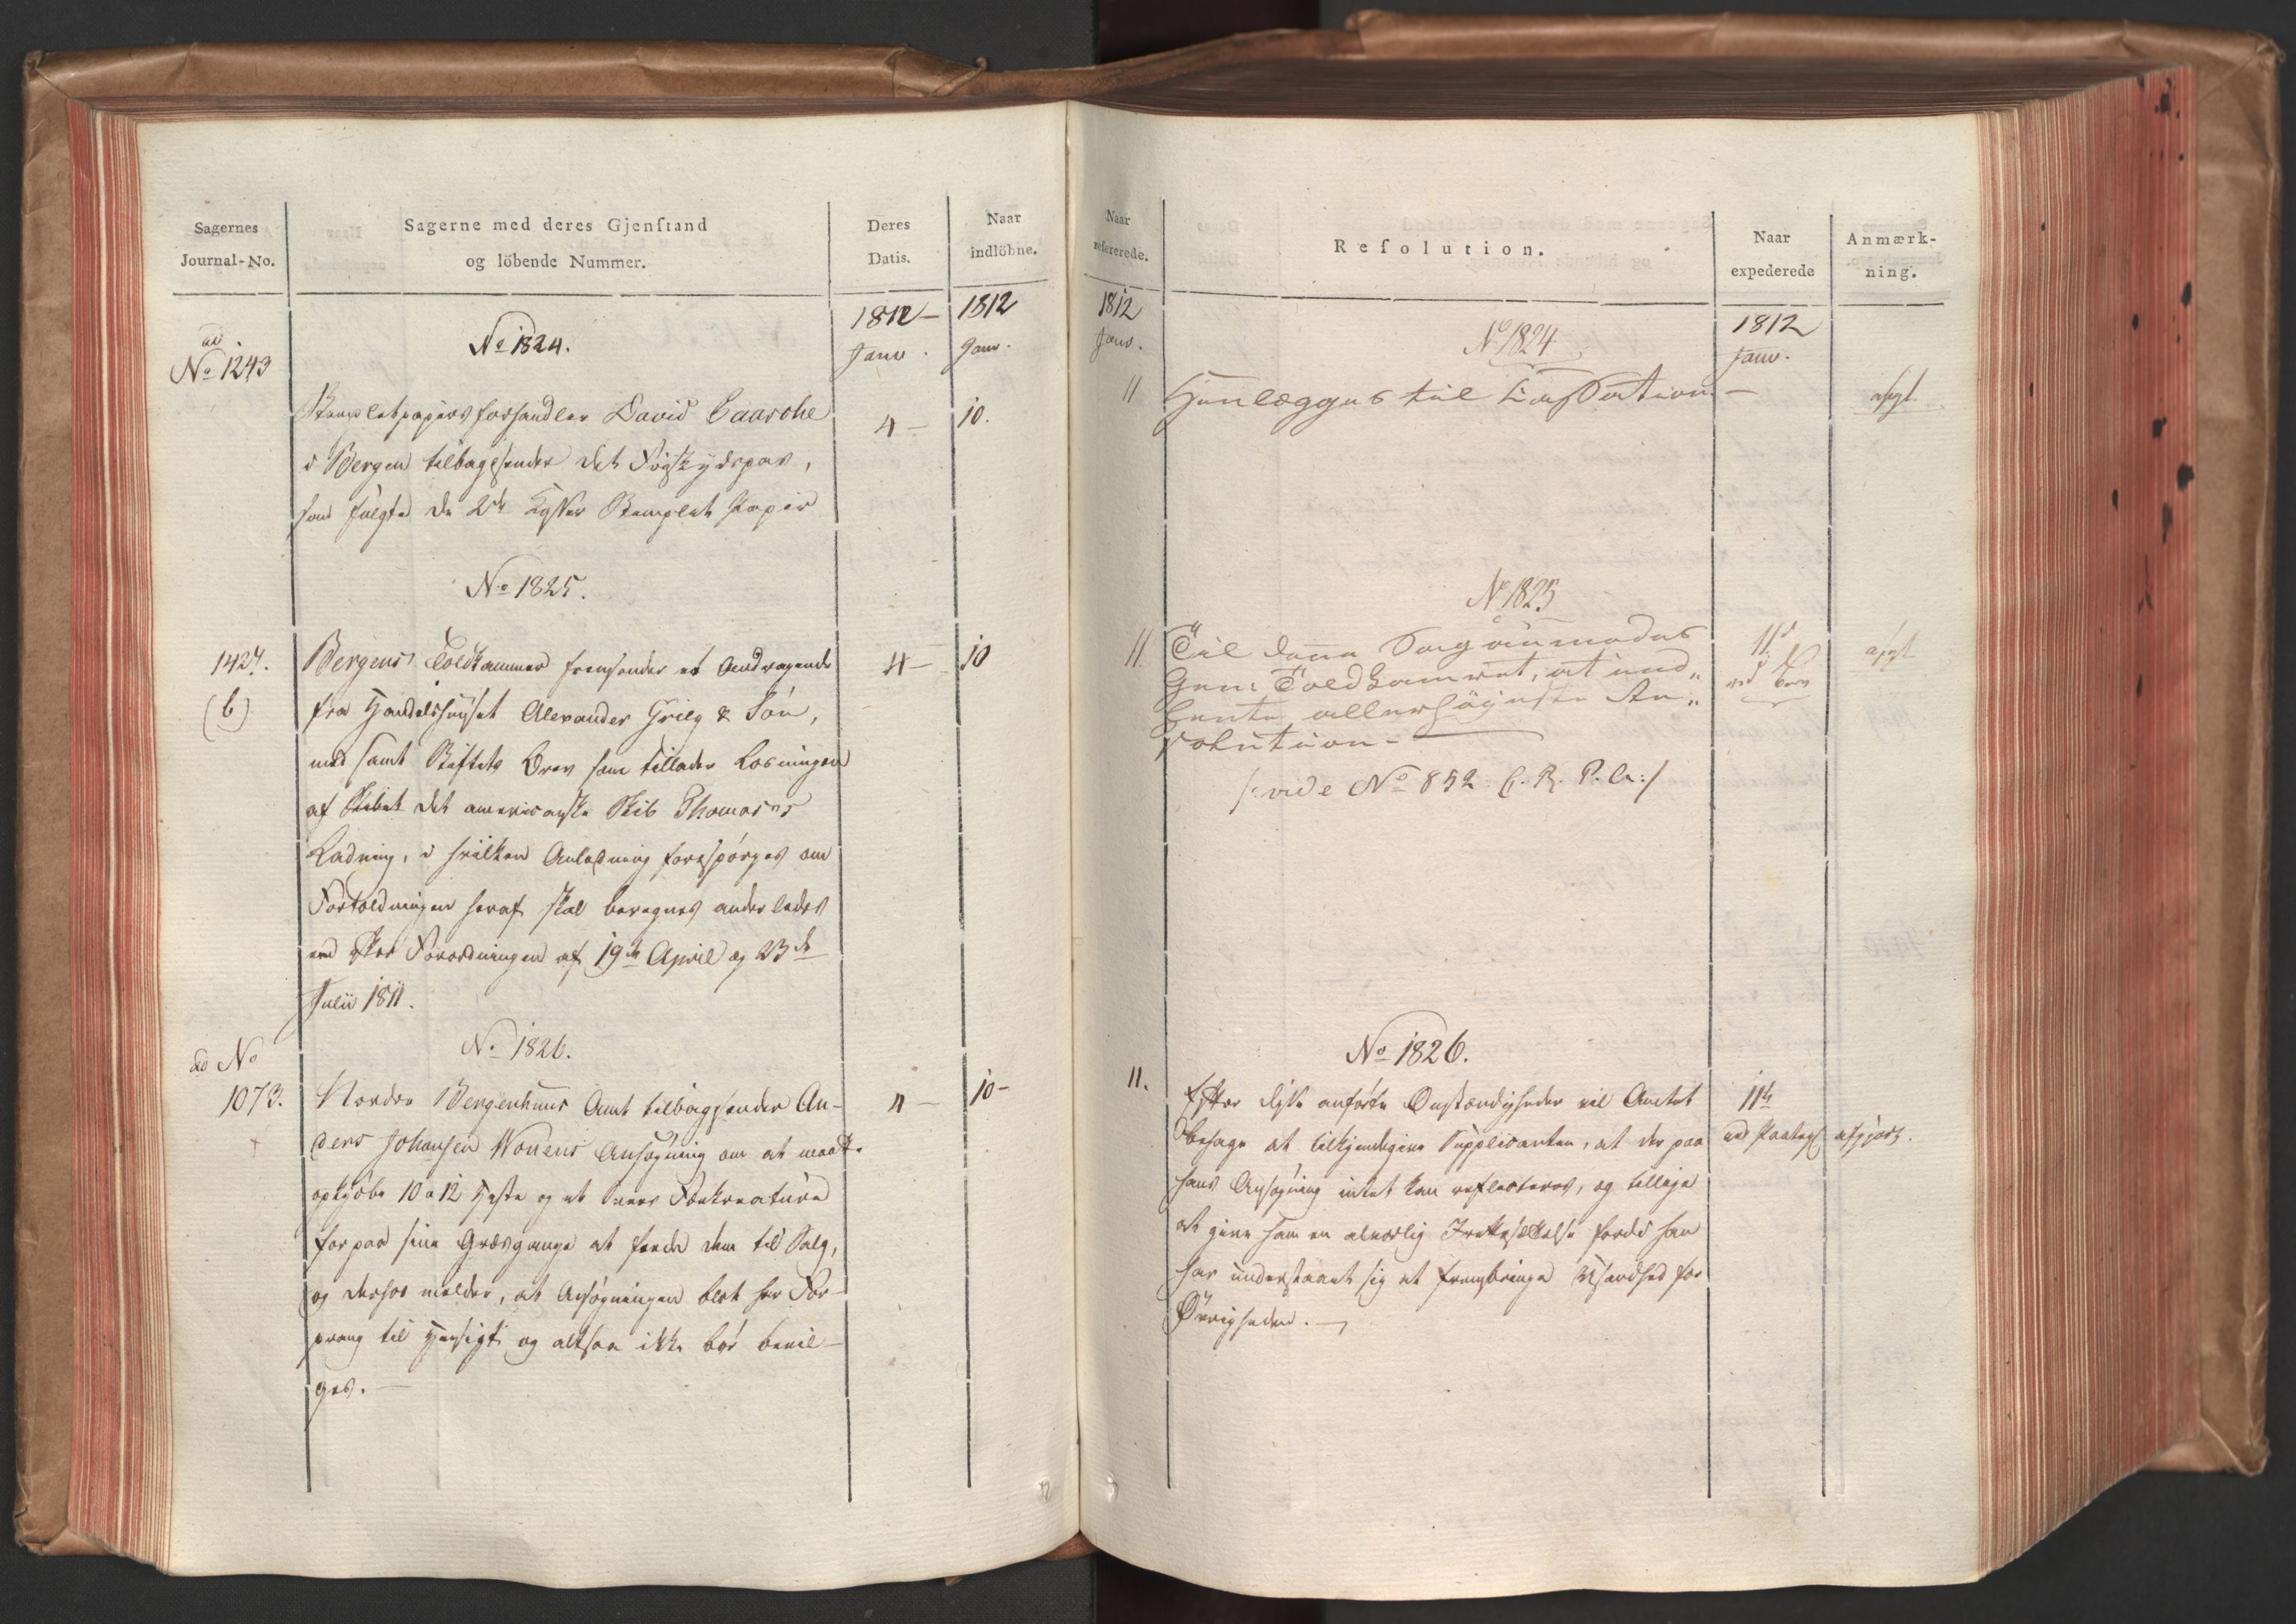 Sagernes
Journal-No.
Sagerne med deres Gjenſtand
og löbende Nummer.
Deres
Datis.
Naar
indlöbne.
1812 –
Janv.
1812
Janv.
ad
No 1243
No 1824.
Stempletpapirs forhandler David Caarche
i Bergen tilbagesender det Frÿskydspas,
som fulgte de 2de Kister Stemplet Papir
4 –
10.
No 1825.
1427.
(b)
Bergens Toldkammer fremsender et Andragende
fra Handelshuset Alexander Grieg & Sön,
med samt Stiftets Brev som tillader Losningen
af Skibet det americanske Skib Thomas's
Ladning, i hvilken Anledning forespørges om
Fortoldningen heraf skal beregnes anderledes
end efter Forordningen af 19de April og 23de
Julii 1811.
4 –
10
ad No
1073.
No 1826.
Nordre Bergenhuus Amt tilbagesender An-
ders Johansen Wonens Ansøgning om at maatte
opkjöbe 10 a 12 Heste og et Fækreature
for paa sine Græsgange at feede dem til Salg,
og derhos melder, at Ansøgningen blot har For-
prang til Hensigt og altsaa ikke bör bevil-
ges. –
4 –
10 –
Naar
refererede.
Reſolution.
Naar
expederede
Anmærk-
ning.
1812
Janv.
1812
Janv.
No 1824
11
Henlægges til
afgt.
No 1825
11
Til denne Sag anmodes
Gen: Toldkamret, at ind„
hente allerhöjeste Re„
solution –
/: vide No 852 C. R. P. C. :/
11
ved Brev
afgt
No 1826.
11.
Efter disse anførte Omstændigheder vil Amtet
behage at tilkjendegive Supplicanten, at der paa
hans Ansøgning intet kan reflecteres, og tillige
at give ham en alvorlig Irettesættelse fordi han
har understaaet sig at frembringe Usandhed for
Øvrigheden. –
11te
ved Paategn
afgjort.